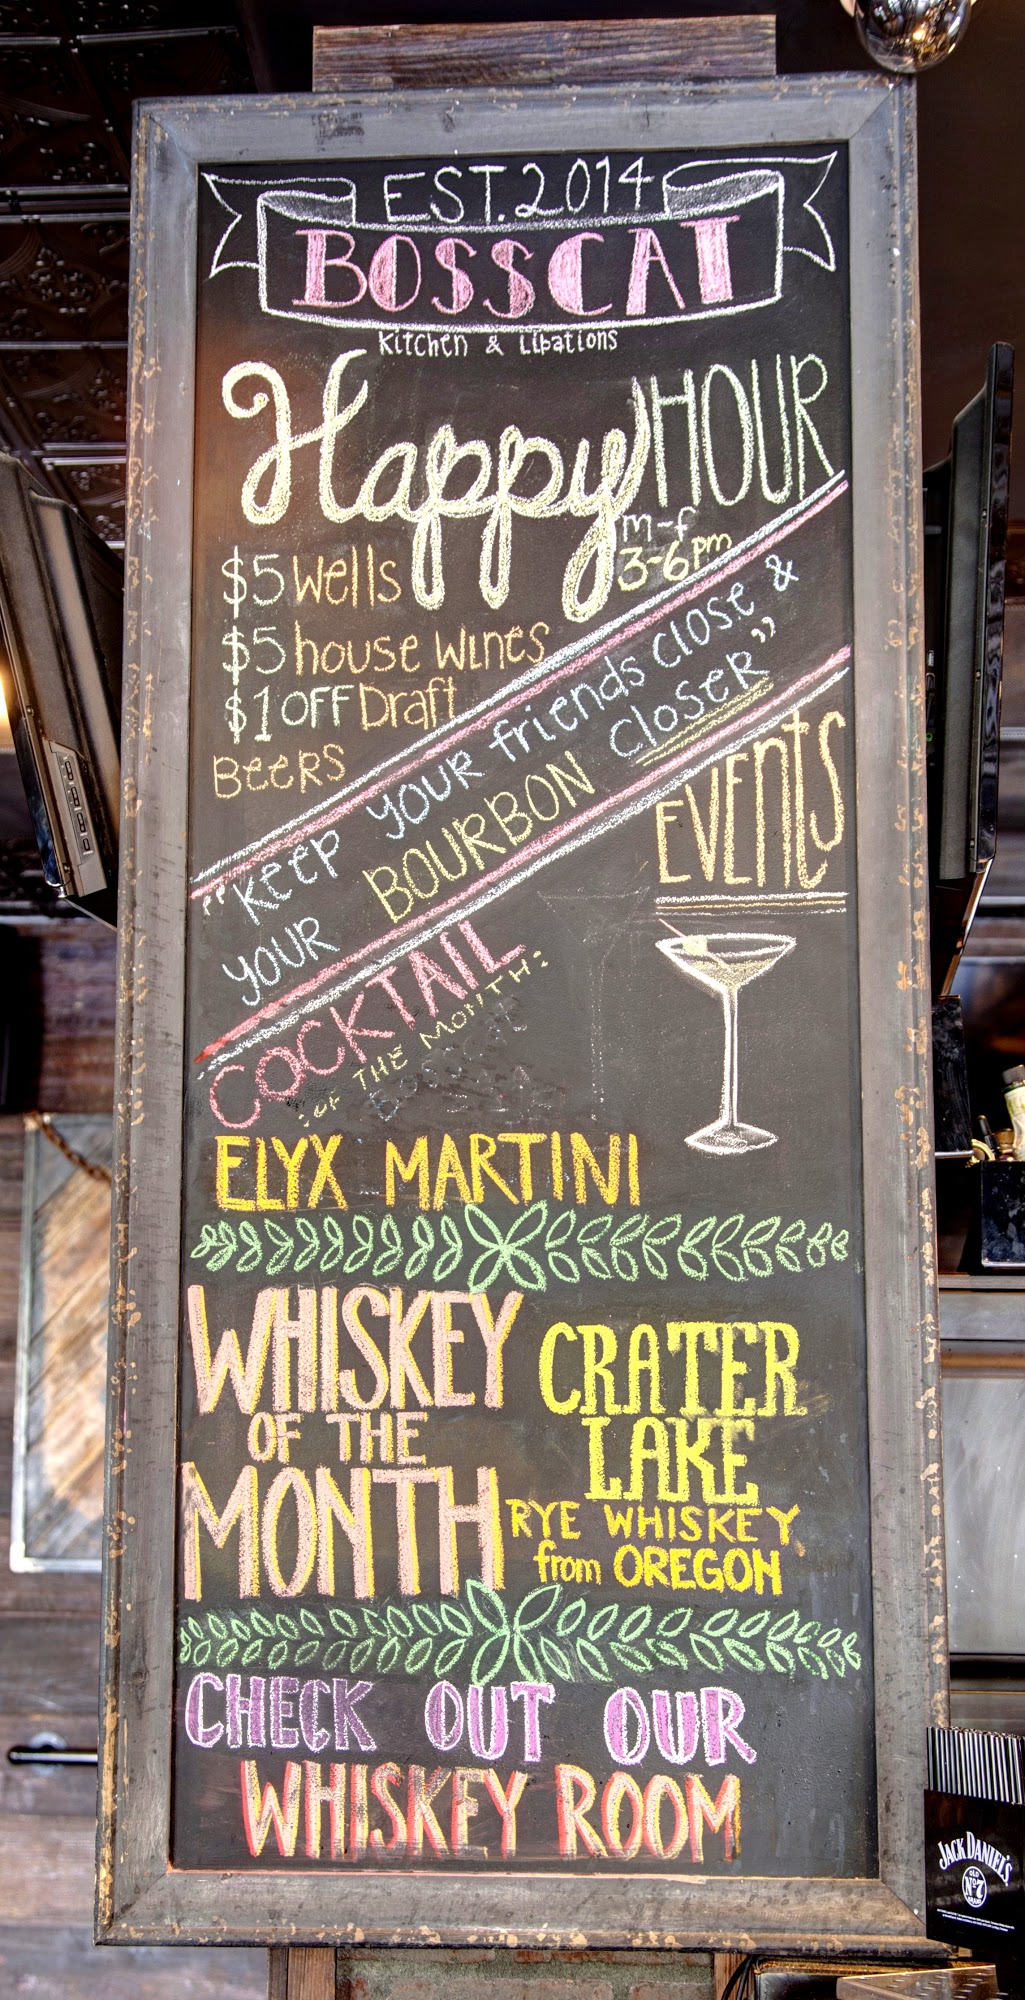 EST. 2014
BOSSCAT
Kitchen & Libations
Happy HOUR
m-f
3-6pm
$5 wells
$5 house wines
$1 OFF Draft
BEERS
"Keep your friends close &
your BOURBON closer"
EVENTS
COCKTAIL
OF THE MONTH:
ELYX MARTINI
WHISKEY
OF THE
MONTH
CRATER
LAKE
RYE WHISKEY
from OREGON
CHECK OUT OUR
WHISKEY ROOM
JACK DANIEL'S
OLD
No. 7
BRAND